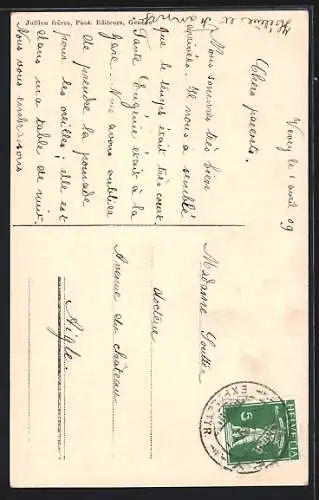 Jullien frères, Phot. Editeurs, Genève
Vevey le 1 avril 09
Chers parents.
Nous sommes très bien
arrivées. Il nous a semblé
que le temps était très court.
Tante Eugénie était à la
gare. Nous avons oublier
de prendre la pomade
pour les oreilles; elle est
dans ma table de nuit.
Nous vous
Hélène et
Madame
docteur
Avenue du château
Aigle.
EXP. LETTR.
HELVETIA
5